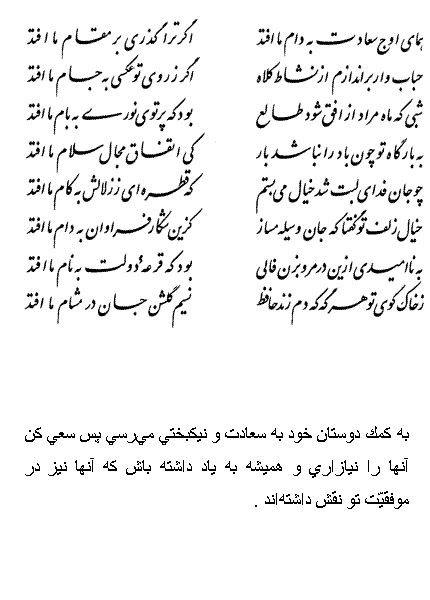 همای اوج سعادت به دام ما افتد اگر ترا گذری بر مقام ما افتد
حباب وار براندازم از نشاط کلاه اگر ز روی تو عکسی به جام ما افتد
شبی که ماه مراد از افق شود طالع بود که پرتوی نورے به بام ما افتد
به بارگاه تو چون باد را نباشد بار کی اتفاق مجال سلام ما افتد
چو جان فدای لبت شد خیال می بستم که قطره ای ز زلالش به کام ما افتد
خیال زلف تو گفتا که جان وسیله مساز کزین شکار فراوان به دام ما افتد
به ناامیدی ازین در مرو بزن فالی بود که قرعهٔ دولت به نام ما افتد
ز خاک کوی تو هر گه که دم زند حافظ نسیم گلشن جان در مشام ما افتد
به كمك دوستان خود به سعادت و نيكبختي مي‌رسي پس سعي كن
آنها را نيازاري و هميشه به ياد داشته باش كه آنها نيز در
موفقيّت تو نقش داشته‌اند .